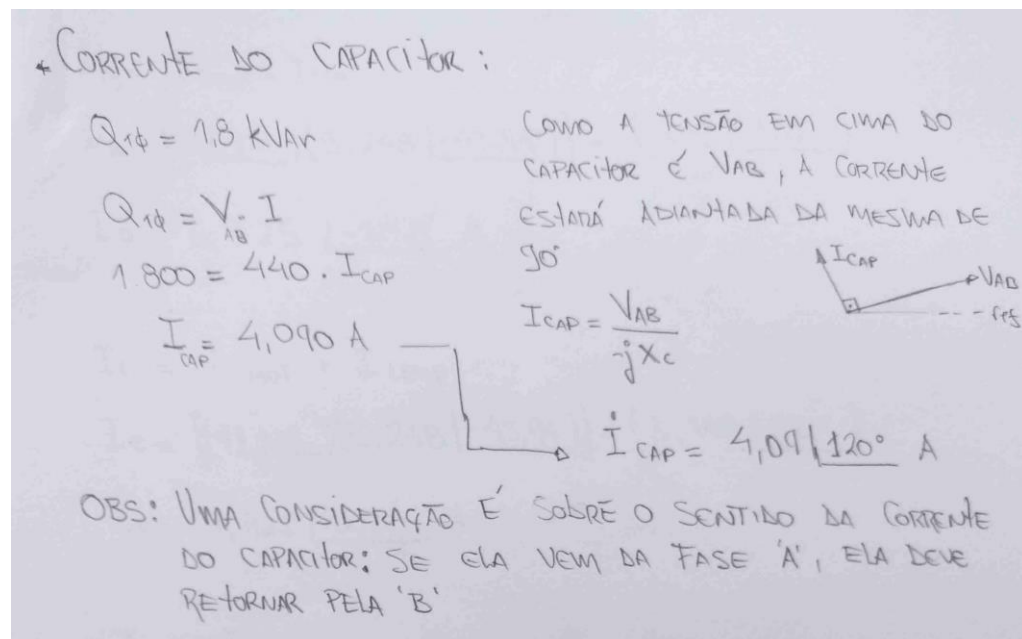 * CORRENTE DO CAPACITOR:
Q1ϕ = 1,8 kVAr
Q1ϕ = VAB . I
1 800 = 440 . ICAP
ICAP = 4,090 A
COMO A TENSÃO EM CIMA DO
CAPACITOR É VAB, A CORRENTE
ESTARÁ ADIANTADA DA MESMA DE
90°
ICAP
VAB
ref
ICAP = VAB / -jXc
İCAP = 4,09 |120° A
OBS: UMA CONSIDERAÇÃO É SOBRE O SENTIDO DA CORRENTE
DO CAPACITOR: SE ELA VEM DA FASE 'A', ELA DEVE
RETORNAR PELA 'B'